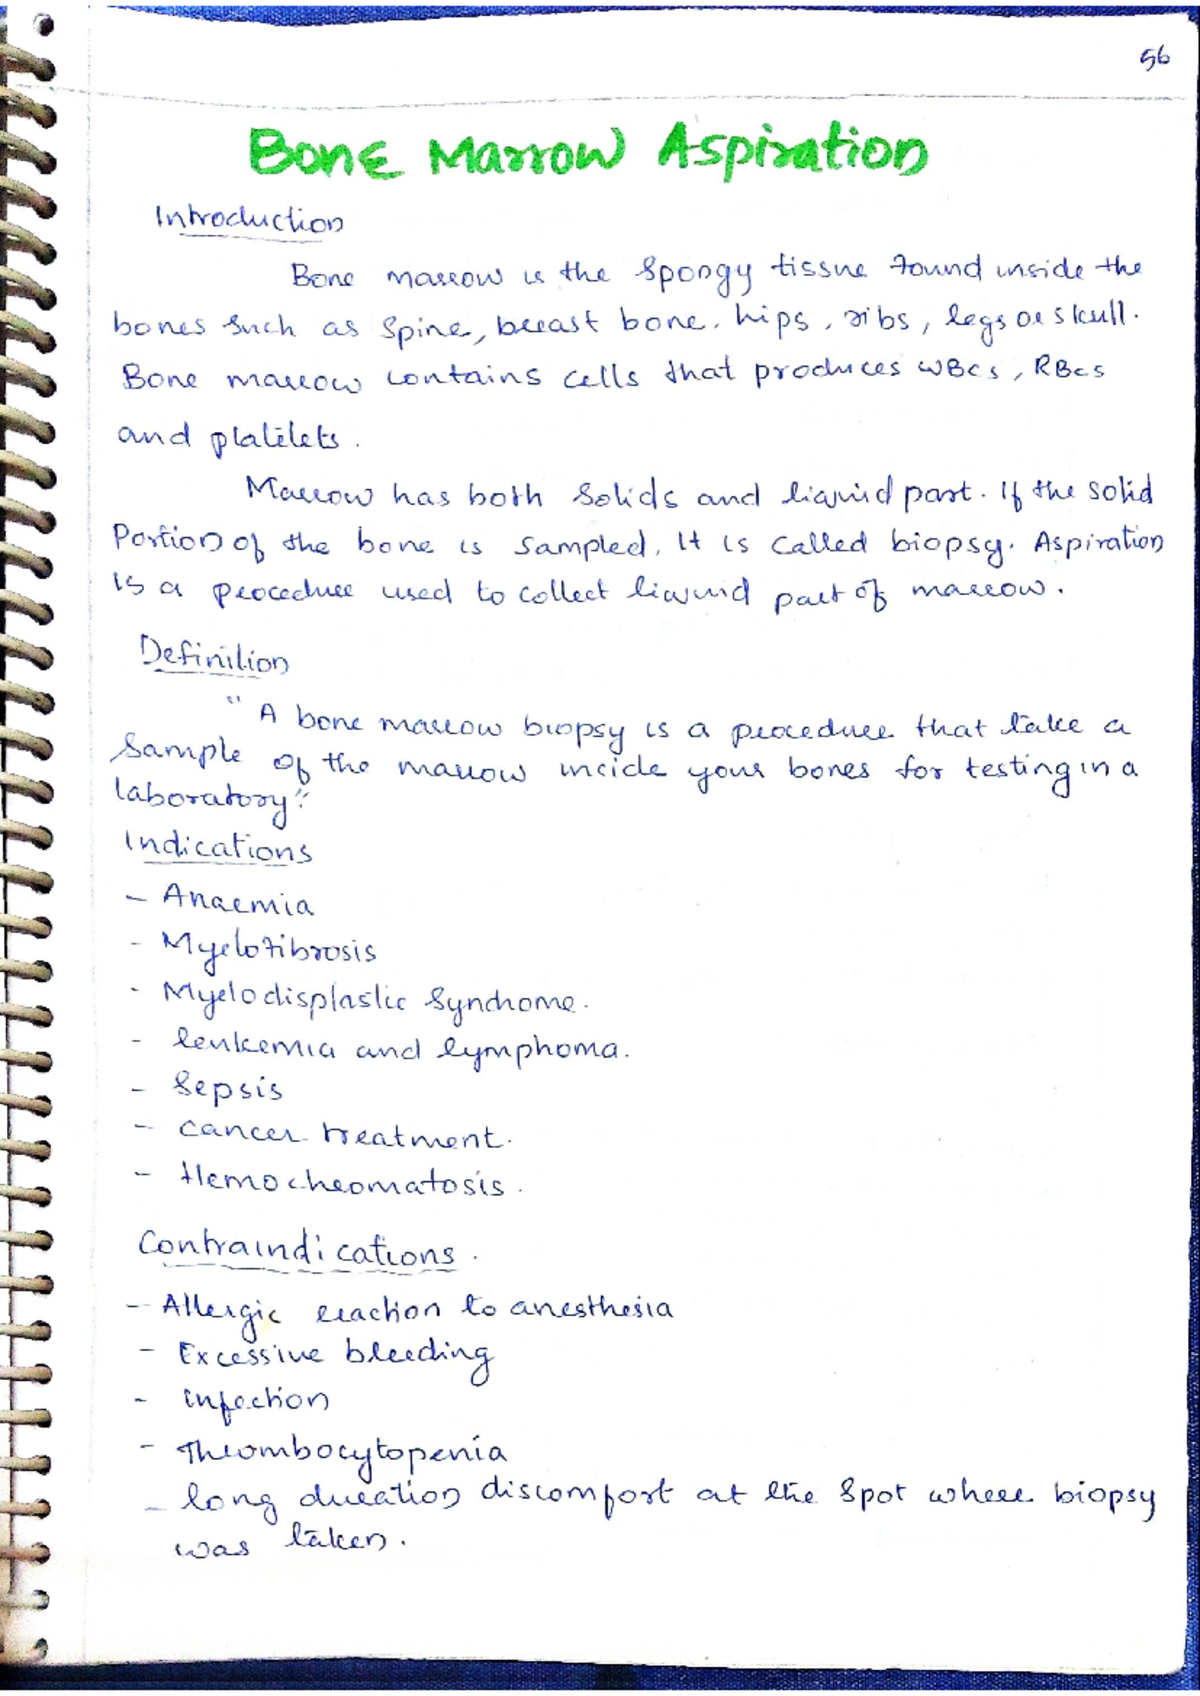 56
Bone Marrow Aspiration
Introduction
Bone marrow is the spongy tissue found inside the
bones such as spine, breast bone, hips, ribs, legs or skull.
Bone marrow contains cells that produces WBCs, RBCs
and platelets.
Marrow has both solids and liquid part. If the solid
Portion of the bone is sampled, it is called biopsy. Aspiration
is a procedure used to collect liquid part of marrow.
Definition
"A bone marrow biopsy is a procedure that take a
sample of the marrow incide your bones for testing in a
laboratory"
Indications
- Anaemia
- Myelofibrosis
- Myelodisplastic Syndrome.
- leukemia and lymphoma.
- Sepsis
- cancer treatment.
- Hemochromatosis.
Contraindications.
- Allergic reaction to anesthesia
- Excessive bleeding
- infection
- Thrombocytopenia
- long duration discomfort at the spot where biopsy
was taken.